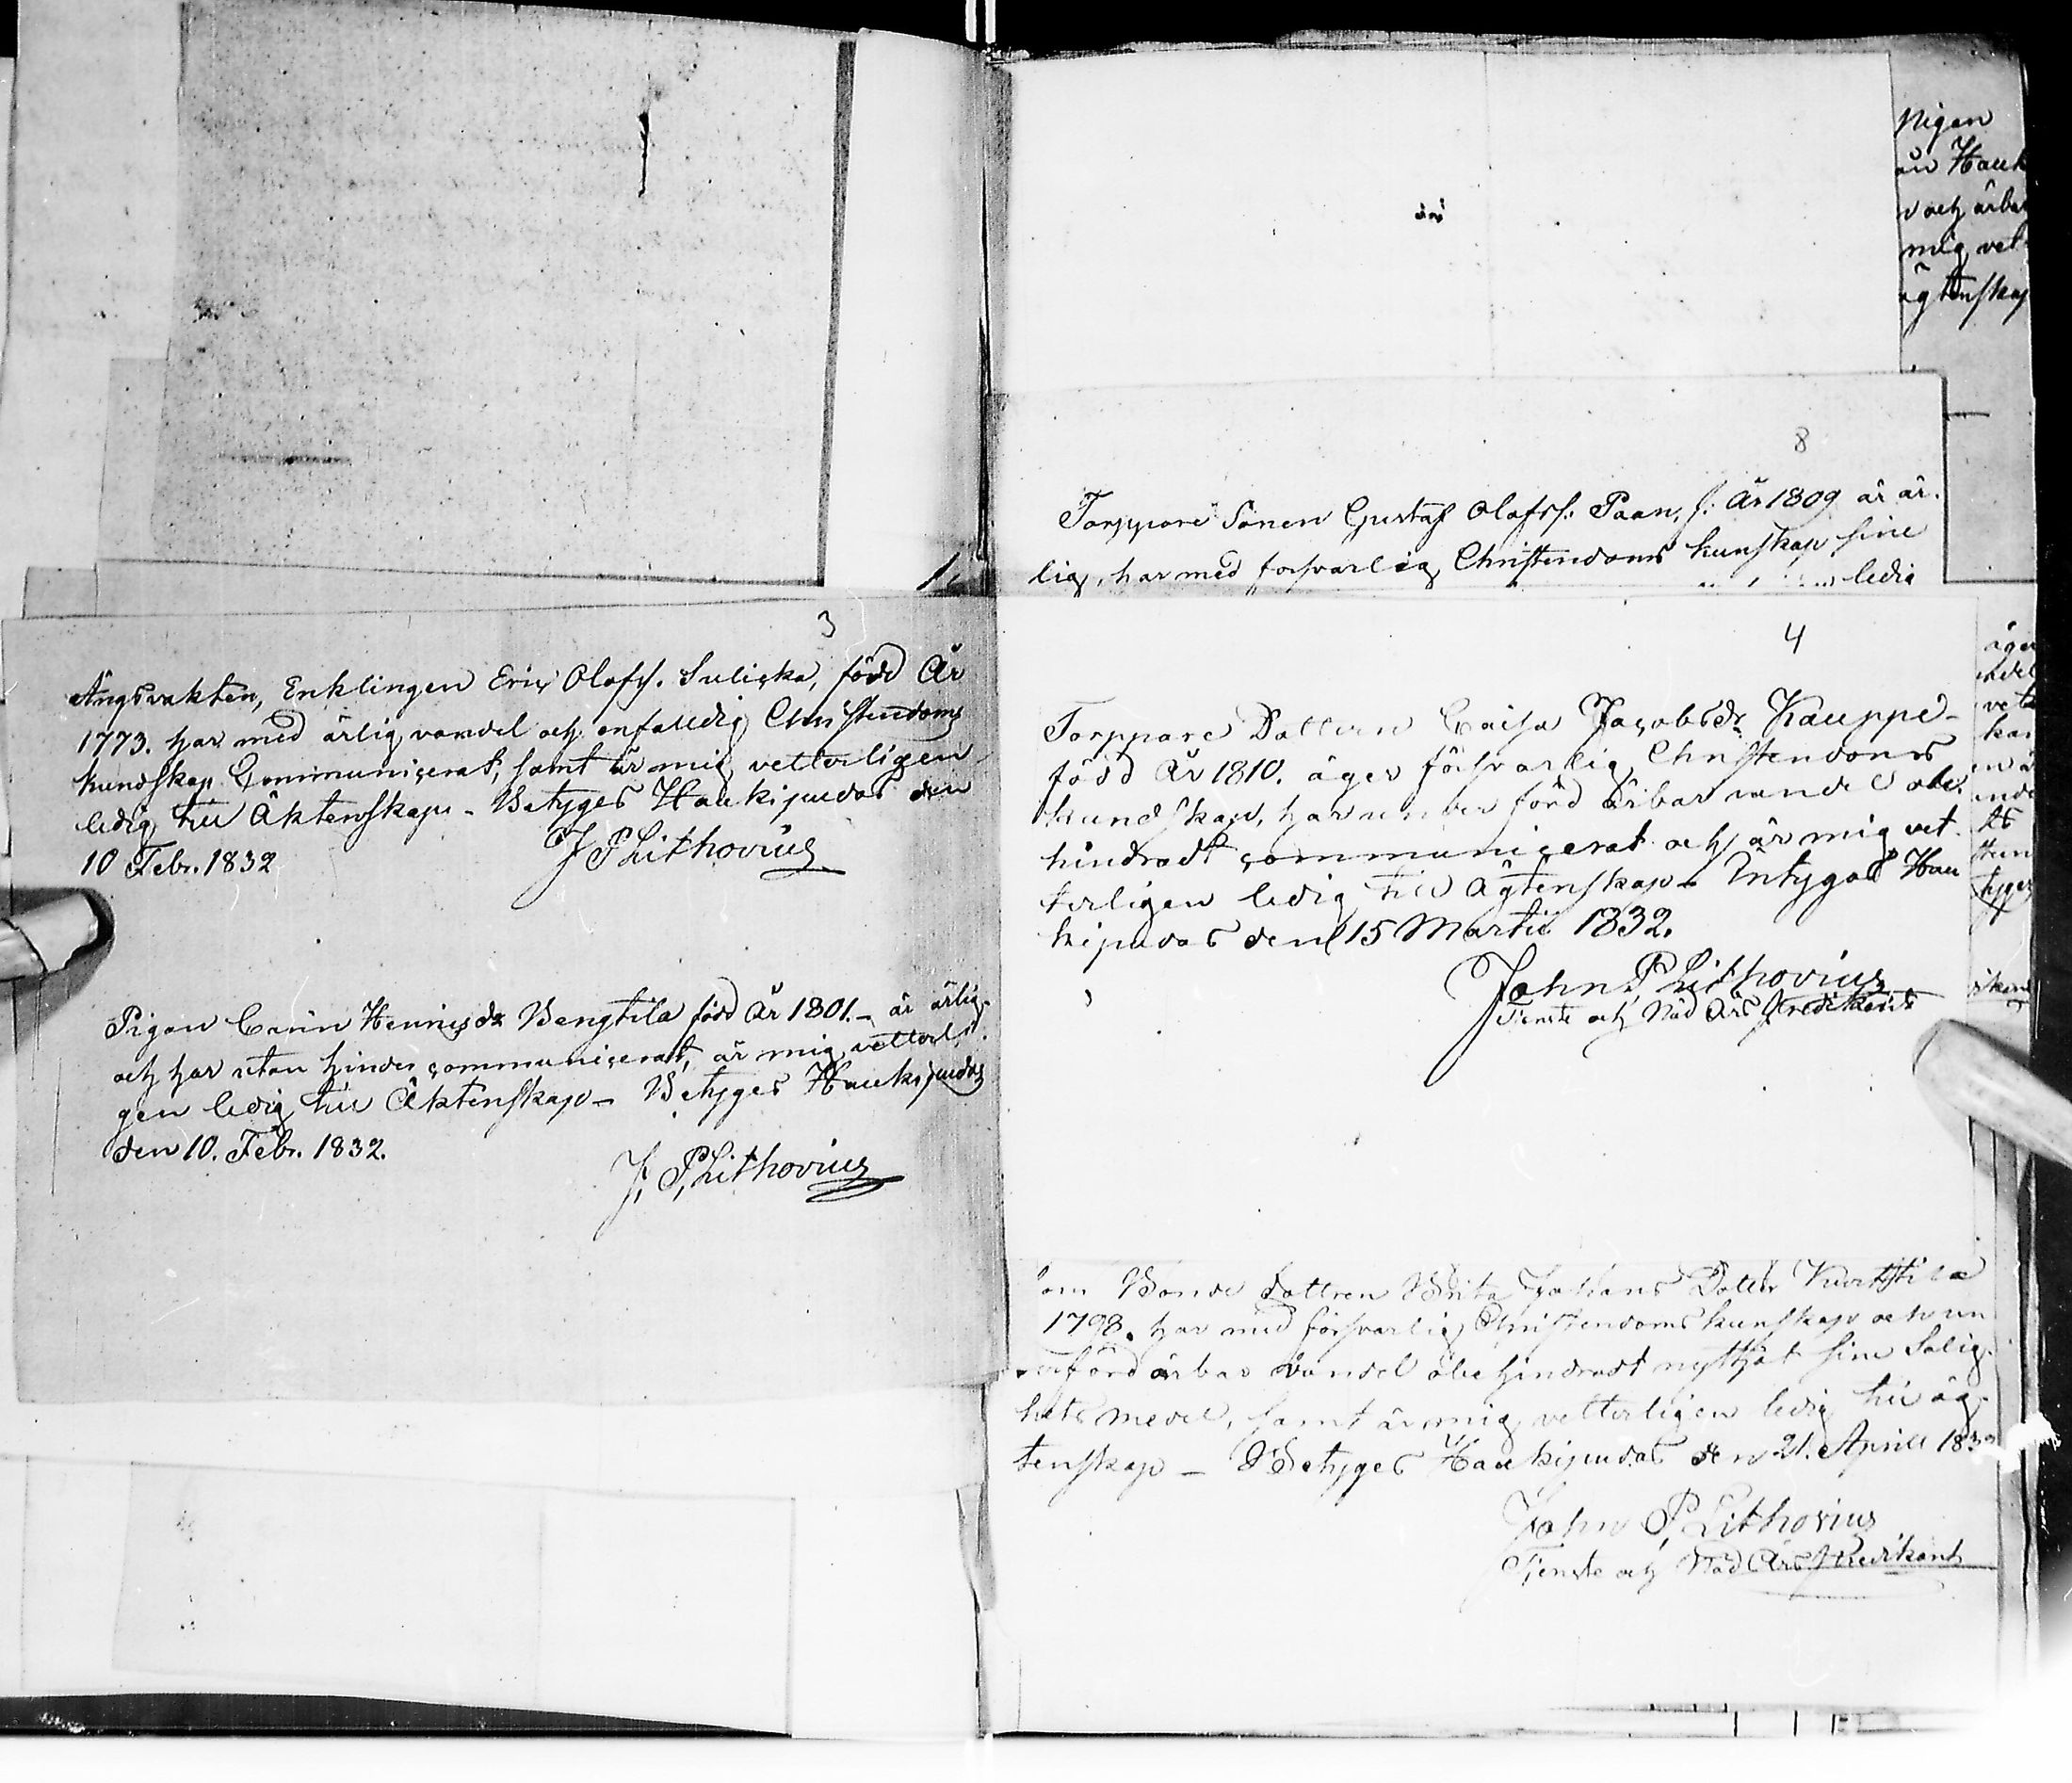 3
Ängsvakten, Enklingen Eric Olofss. Suliska, född År
1773. har med ärlig vandel och enfalldig Christendoms
kundskap Communicerat, samt är mig vetterligen
ledig till Äktenskap - Betyges Haukipudas den
10 Febr. 1832
J P Lithovius
Pigan Carin Henricsdr Bengtila född År 1801. - är ärlig
och har utan hinder communicerat, är mig vetterli-
gen ledig till Äktenskap - Betyges Haukipudas
den 10. Febr. 1832.
J. P. Lithovius
1.
Pigan
än Hauk
v och ärba
mig vet
ägtenskap
8
Torppare Sonen Gustaf Olofss: Paan, f: År 1809 är är-
lig, har med forsvarlig Christendoms kunskap sine
ledig
4
Torppare Dottern Caisa Jacobsdr Kauppe-
född År 1810. äger försvarlig Christendoms
kundskap, har under förd ärbar vandel obe-
hindradt communicerat och är mig vet-
terligen ledig till Ägtenskap - Intygas Hau
kipudas den 15 Martii 1832.
John P Lithovius
Tienste och Nåd Års Predikant
om Bonde dottren Brita Johans Dotter Kurttila
1798. har med försvarlig Christendoms kunskap och un
derförd ärbar vandel obehindradt nyttjat sine Salig-
hets medel, samt är mig vetterligen ledig till äg-
tenskap - Betyges Haukipudas den 21. Aprill 1832
John P Lithovius
Tjenste och Nåd Års Predikant